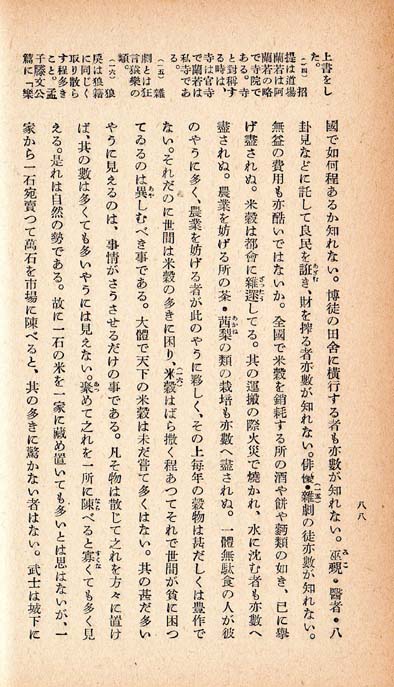 八八
國で如何程あるか知れない。博徒の田舎に橫行する者も亦數が知れない。巫覡・醫者・八
卦見などに託して良民を誑き、財を搾る者亦數が知れない。俳優・雜劇の徒亦數が知れない。
無益の費用も亦酷いではないか。全國で米穀を銷耗する所の酒や餅や麪類の如き、已に擧
げ盡されぬ。米穀は都會に雜遝してる。其の運搬の際火災で燒かれ、水に沈む者も亦數へ
盡されぬ。農業を妨げる所の茶・茜梨の類の栽培も亦數へ盡されぬ。一體無駄食の人が彼
のやうに多く、農業を妨げる者が此のやうに夥しく、その上每年の穀物は甚だしくは豐作で
ない。それだのに世間は米穀の多きに困り、米穀はばら撒く程あつてそれで世間が貧に困つ
てゐるのは異しむべき事である。大體で天下の米穀は未だ嘗て多くはない。其の甚だ多い
やうに見えるのは、事情がさうさせるだけの事である。凡そ物は散じて之れを方々に置け
ば、其の數は多くても多いやうには見えない。聚めて之れを一所に陳べると寡くても多く見
える。是れは自然の勢である。故に一石の米を一家に藏め置いても多いとは思はないが、一
家から一石宛賣つて萬石を市場に陳べると、其の多きに驚かない者はない。武士は城下に
上書をし
た。
(一四) 招
提は道場
蘭若は阿
蘭若の略
で寺院で
と對稱す
る時は、
寺は官寺
で蘭若は
私寺であ
る。
(一五) 雜
劇とは狂
言猿樂の
類。
(一六) 狼
戾は狼籍
に同じく
取り散ら
す程多き
こと。孟
子滕文公
篇に「樂